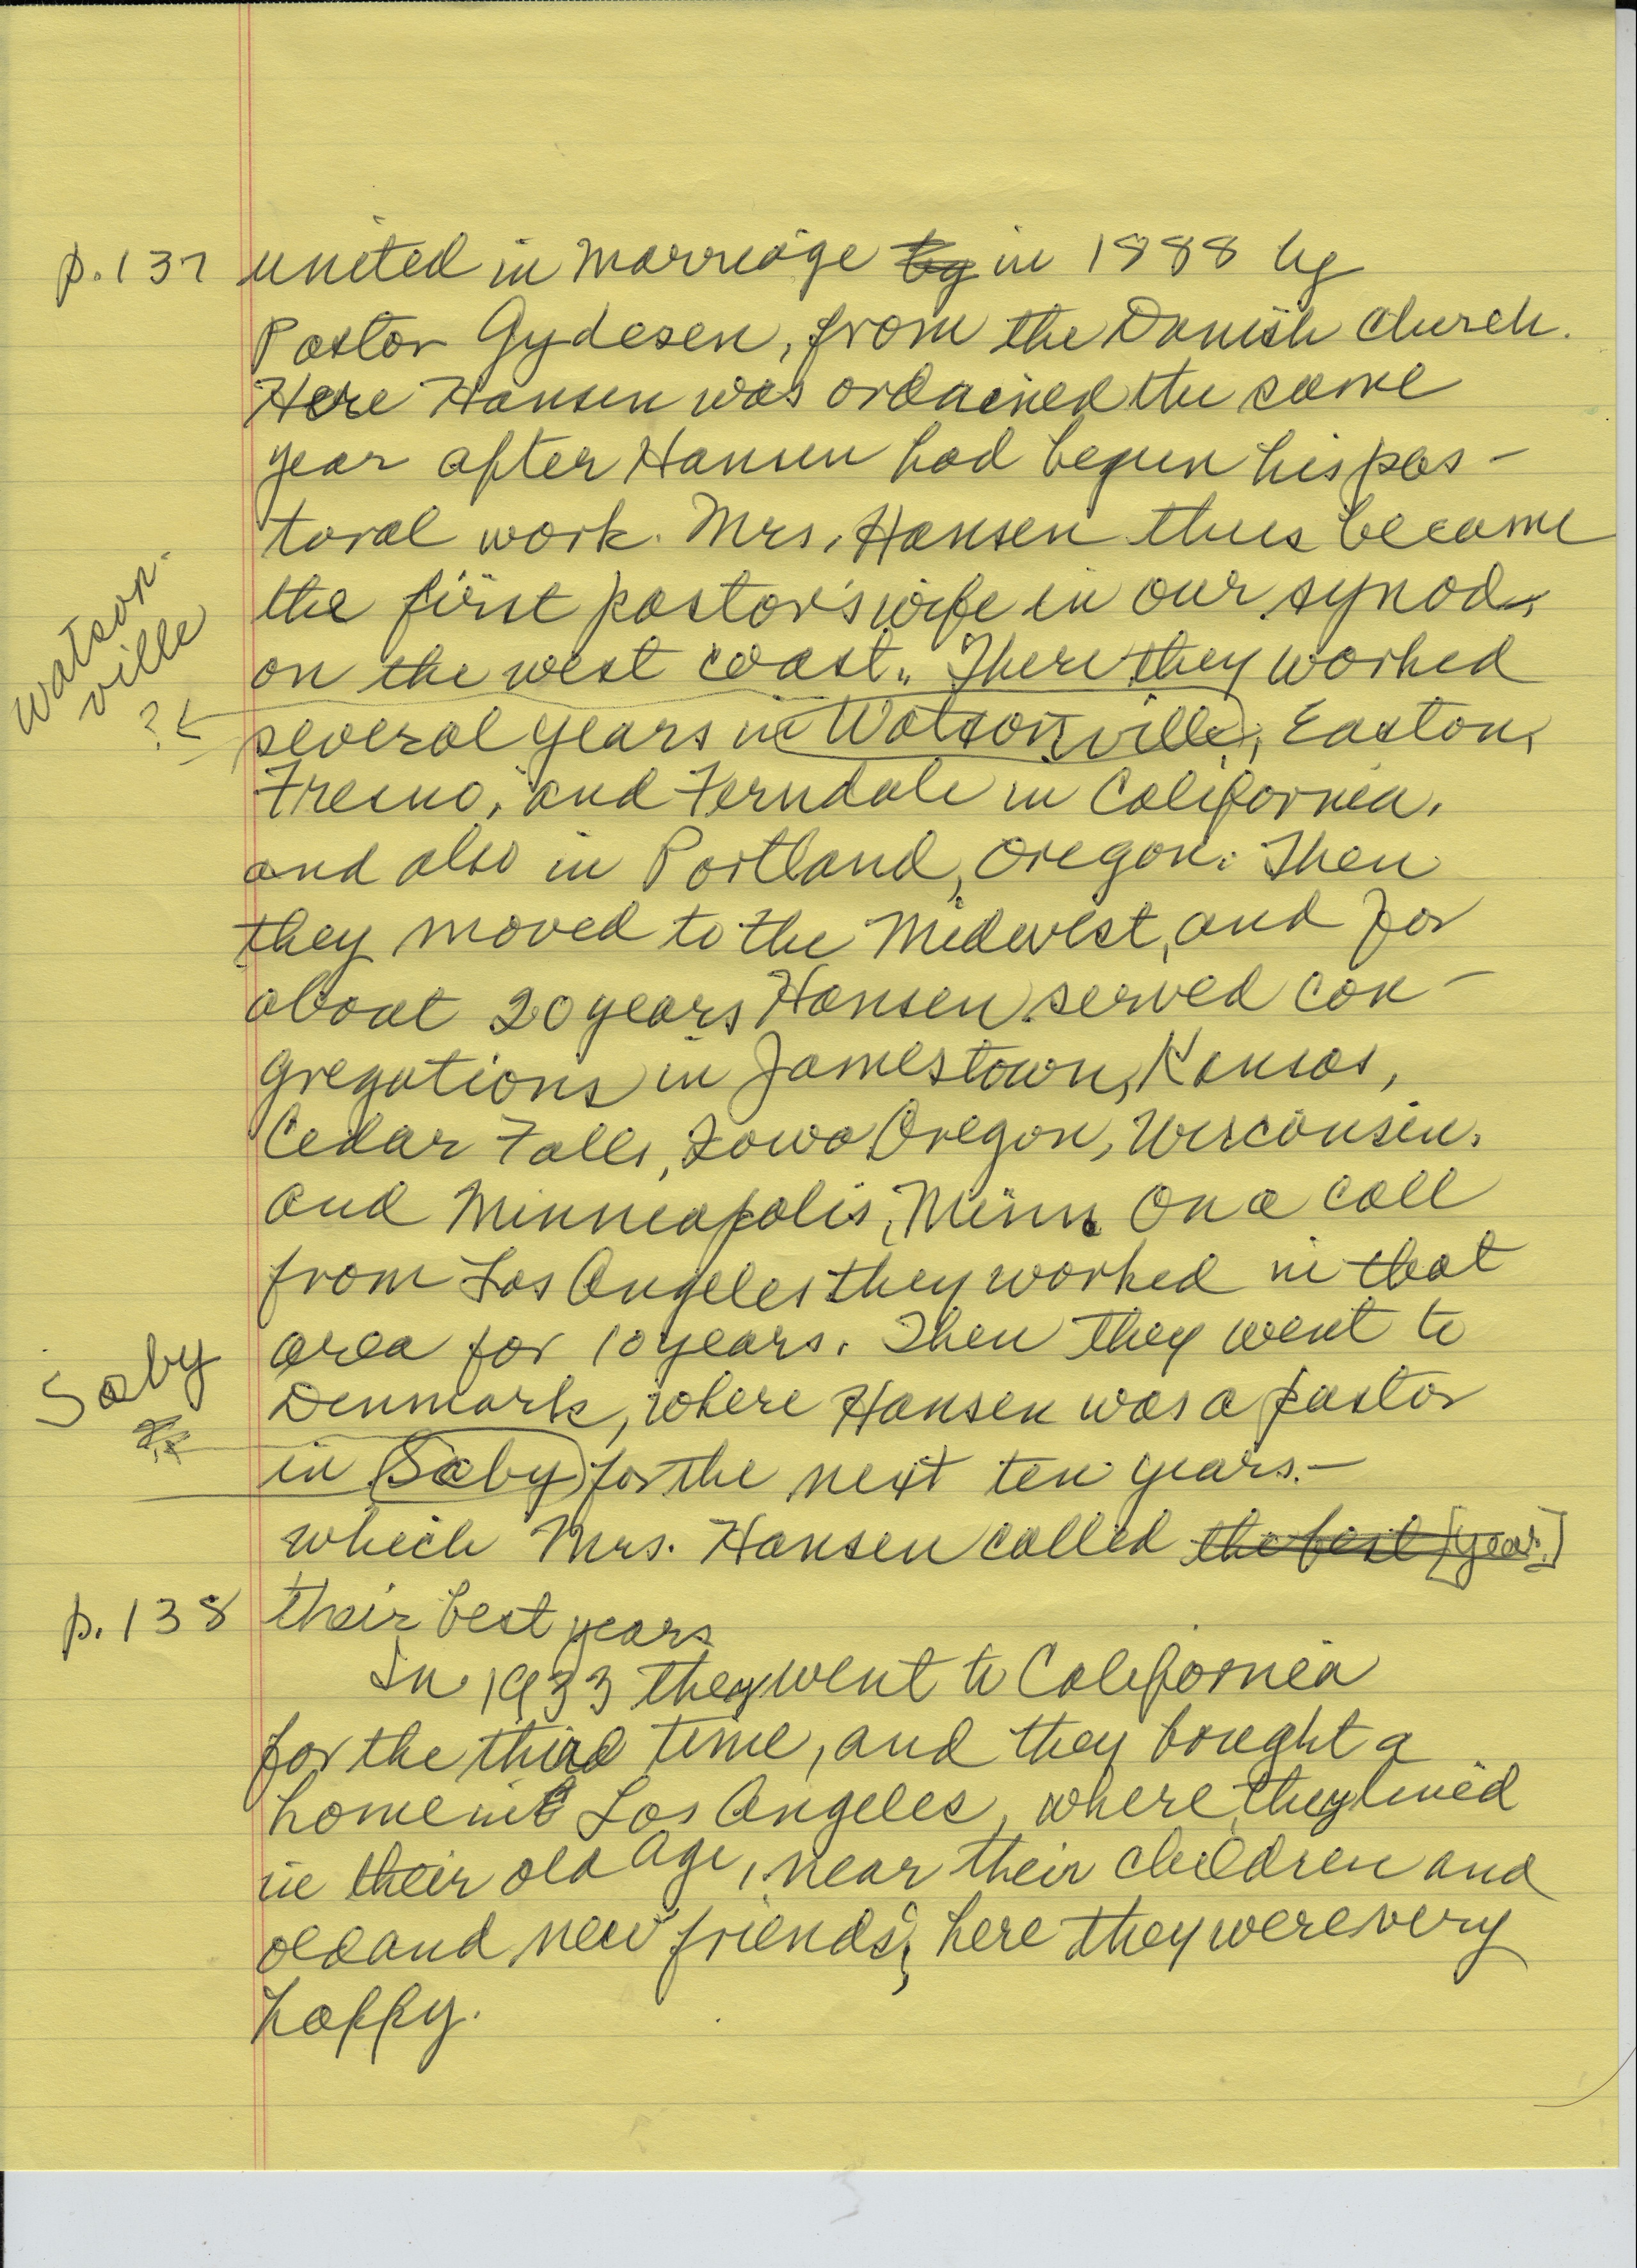 p. 137 united in marriage by in 1888 by
Pastor Gydesen, from the Danish Church.
Here Hansen was ordained the same
year after Hansen had begun his pas-
toral work. Mrs. Hansen thus became
the first pastor's wife in our synod,
on the west coast. There they worked
Watson-
ville
?
several years in Watsonville, Easton,
Fresno, and Ferndale in California,
and also in Portland, Oregon. Then
they moved to the Midwest, and for
about 20 years Hansen served con-
gregations in Jamestown, Kansas,
Cedar Falls, Iowa Oregon, Wisconsin,
and Minneapolis, Minn. On a call
from Los Angeles they worked in that
area for 10 years. Then they went to
Saby
Denmark, where Hansen was a pastor
in Saby for the next ten years. -
which Mrs. Hansen called the best [year.]
p. 138 their best years
In 1933 they went to California
for the third time, and they bought a
home in Los Angeles, where they lived
in their old age, near their children and
old and new friends; here they were very
happy.